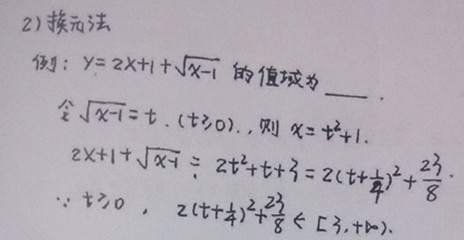 2)换元法
例: y=2x+1+√x-1 的值域为 ___ .
令 √x-1 = t . (t≥0) ., 则 x=t²+1.
2x+1+√x-1 = 2t²+t+3 = 2(t+1/4)²+23/8.
∵ t≥0 , 2(t+1/4)²+23/8 ∈ [3,+∞).